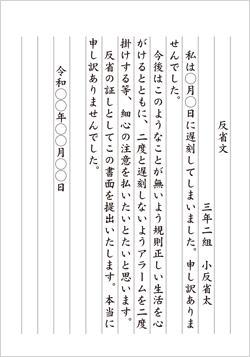 反省文
三年二組　小反省太
私は〇月〇日に遅刻してしまいました。申し訳ありま
せんでした。
今後はこのようなことが無いよう規則正しい生活を心
がけるとともに、二度と遅刻しないようアラームを二度
掛けする等、細心の注意を払いたいとたいと思います。
反省の証しとしてこの書面を提出いたします。本当に
申し訳ありませんでした。
令和〇〇年〇〇月〇〇日